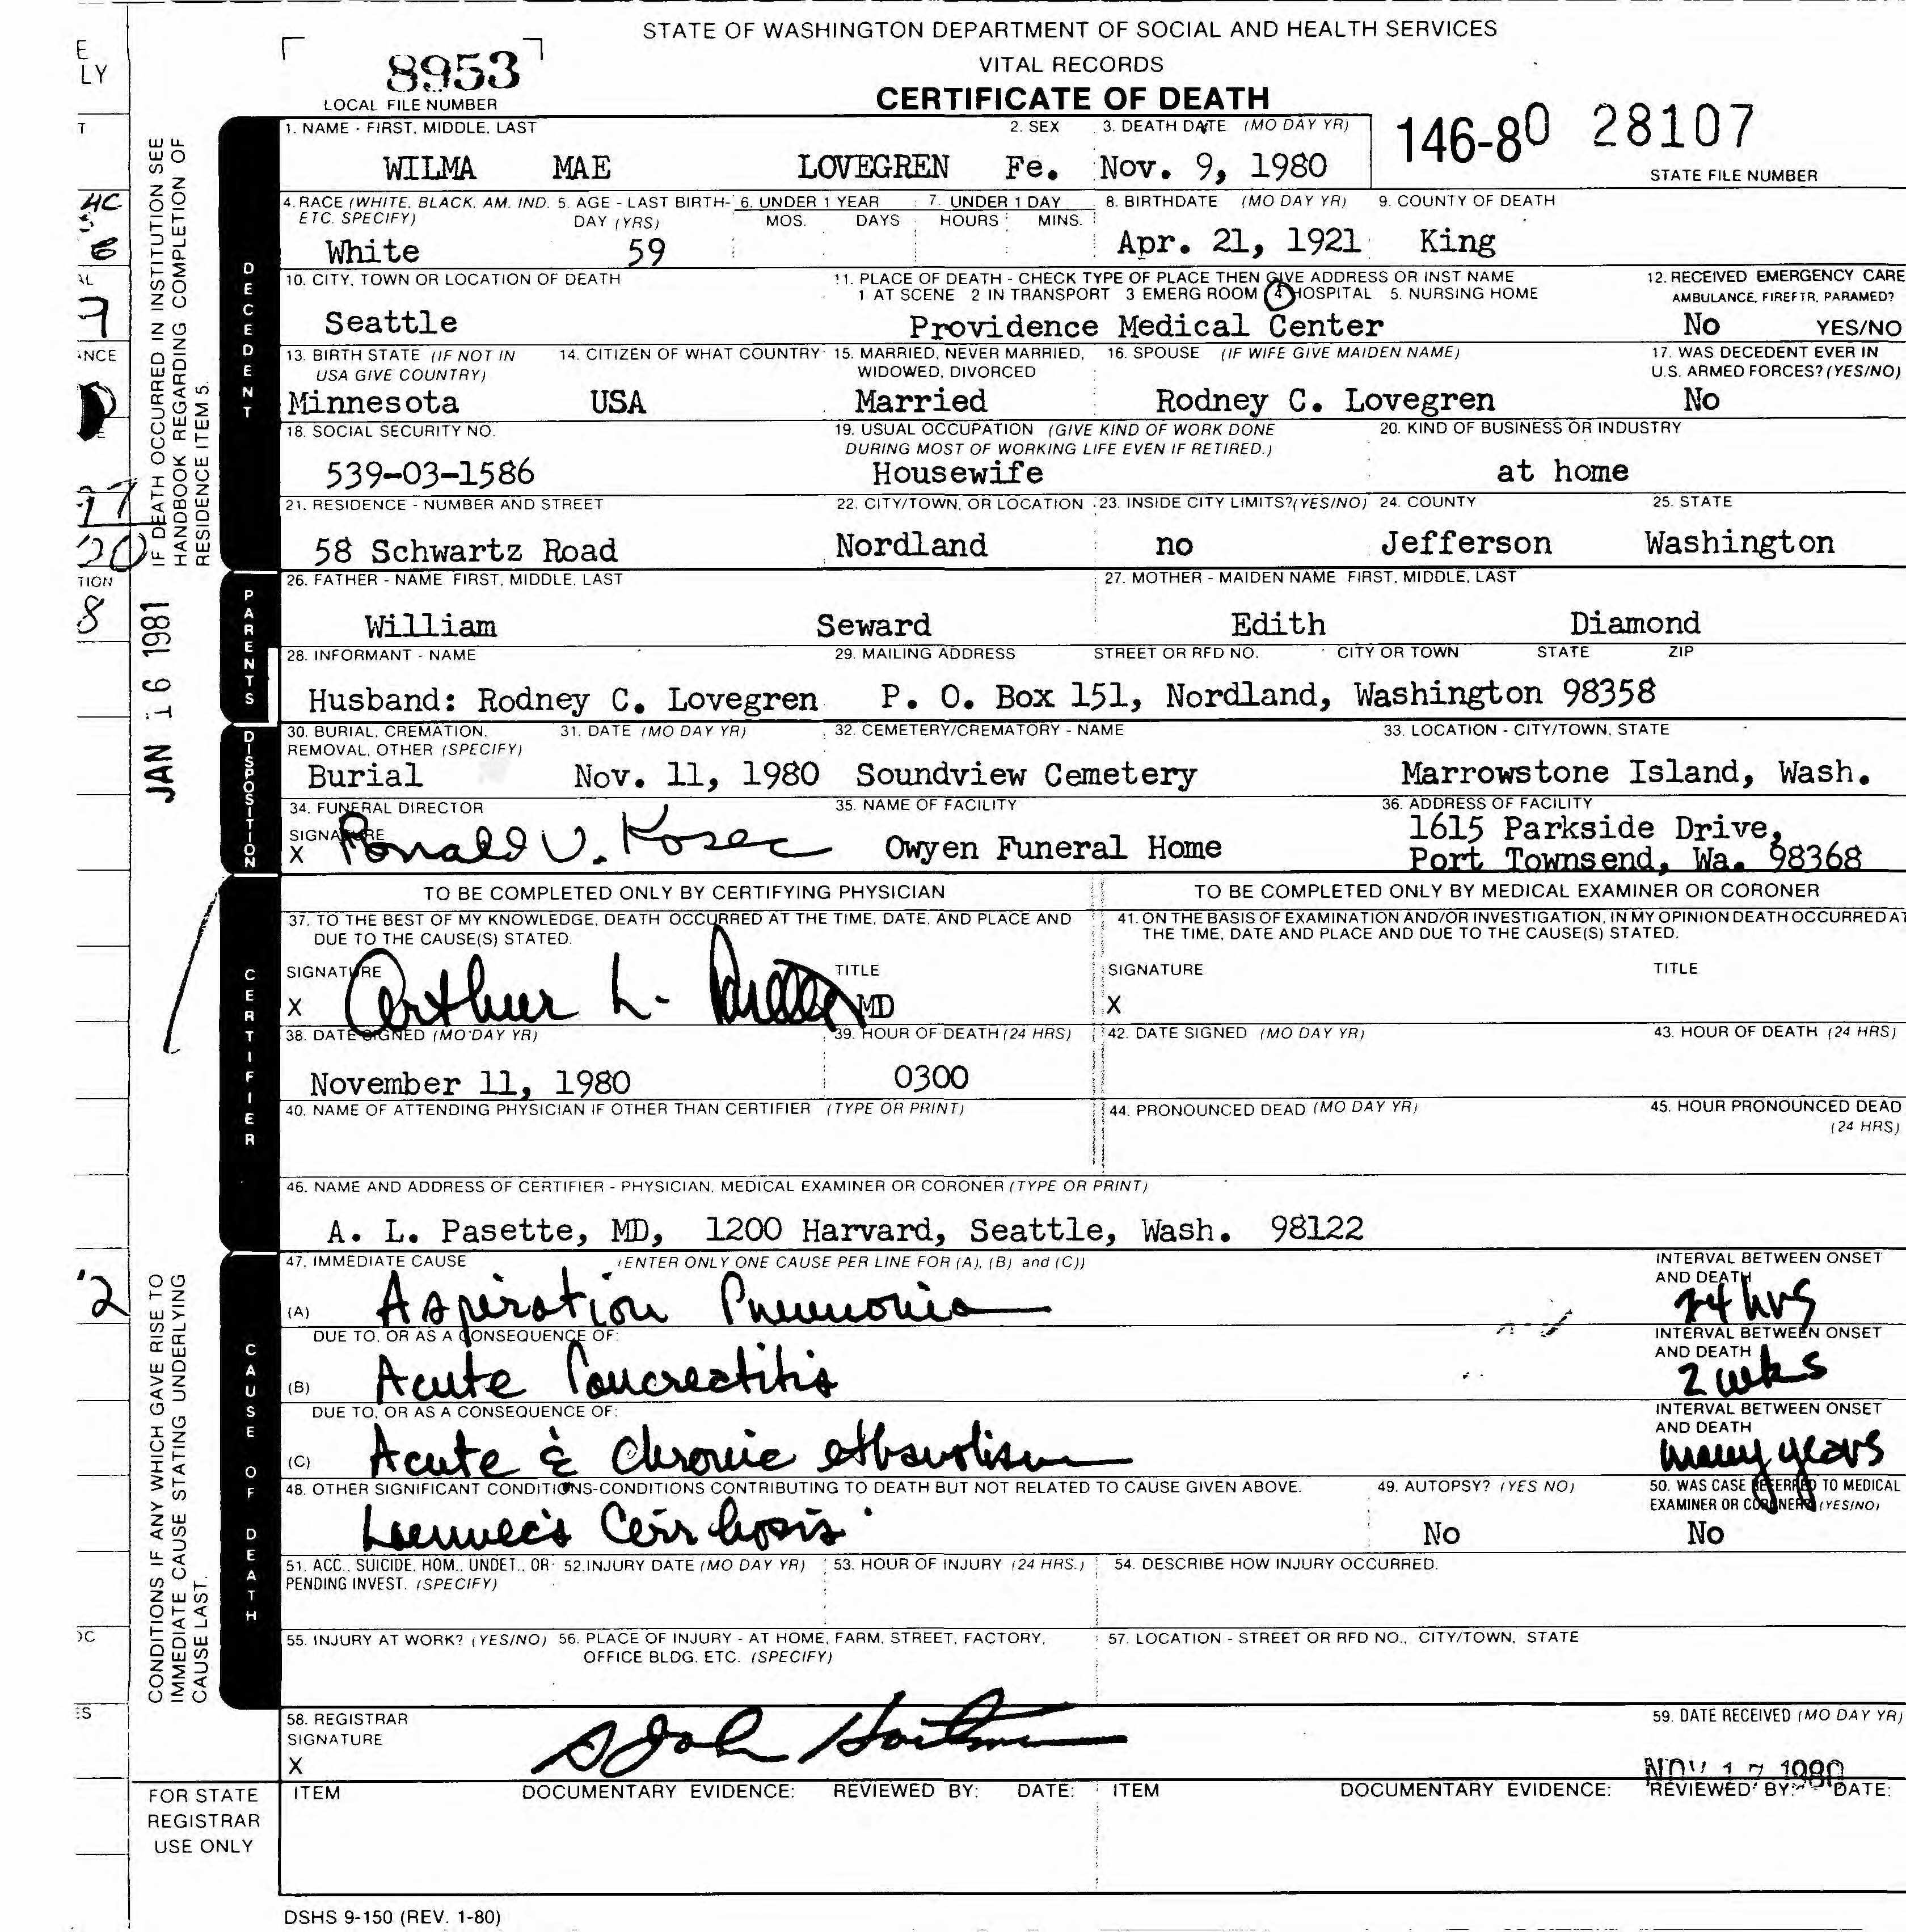 STATE OF WASHINGTON DEPARTMENT OF SOCIAL AND HEALTH SERVICES
VITAL RECORDS
CERTIFICATE OF DEATH
8953
LOCAL FILE NUMBER
146-80 28107
STATE FILE NUMBER
E
LY
T
4C
AL
7
ANCE
77
20
TION
8
2
OC
ES
IF DEATH OCCURRED IN INSTITUTION SEE
HANDBOOK REGARDING COMPLETION OF
RESIDENCE ITEM 5.
JAN 16 1981
DECEDENT
1. NAME - FIRST, MIDDLE, LAST 2. SEX 3. DEATH DATE (MO DAY YR)
WILMA MAE LOVEGREN Fe. Nov. 9, 1980
4. RACE (WHITE, BLACK, AM. IND. 5. AGE - LAST BIRTH- 6. UNDER 1 YEAR 7. UNDER 1 DAY 8. BIRTHDATE (MO DAY YR) 9. COUNTY OF DEATH
ETC. SPECIFY) DAY (YRS) MOS. DAYS HOURS MINS.
White 59 Apr. 21, 1921 King
10. CITY, TOWN OR LOCATION OF DEATH 11. PLACE OF DEATH - CHECK TYPE OF PLACE THEN GIVE ADDRESS OR INST NAME 12. RECEIVED EMERGENCY CARE
1 AT SCENE 2 IN TRANSPORT 3 EMERG ROOM 4 HOSPITAL 5. NURSING HOME AMBULANCE, FIREFTR, PARAMED?
Seattle Providence Medical Center No YES/NO
13. BIRTH STATE (IF NOT IN 14. CITIZEN OF WHAT COUNTRY 15. MARRIED, NEVER MARRIED, 16. SPOUSE (IF WIFE GIVE MAIDEN NAME) 17. WAS DECEDENT EVER IN
USA GIVE COUNTRY) WIDOWED, DIVORCED U.S. ARMED FORCES? (YES/NO)
Minnesota USA Married Rodney C. Lovegren No
18. SOCIAL SECURITY NO. 19. USUAL OCCUPATION (GIVE KIND OF WORK DONE 20. KIND OF BUSINESS OR INDUSTRY
DURING MOST OF WORKING LIFE EVEN IF RETIRED.)
539-03-1586 Housewife at home
21. RESIDENCE - NUMBER AND STREET 22. CITY/TOWN, OR LOCATION 23. INSIDE CITY LIMITS? (YES/NO) 24. COUNTY 25. STATE
58 Schwartz Road Nordland no Jefferson Washington
PARENTS
26. FATHER - NAME FIRST, MIDDLE, LAST 27. MOTHER - MAIDEN NAME FIRST, MIDDLE, LAST
William Seward Edith Diamond
28. INFORMANT - NAME 29. MAILING ADDRESS STREET OR RFD NO. CITY OR TOWN STATE ZIP
Husband: Rodney C. Lovegren P. O. Box 151, Nordland, Washington 98358
DISPOSITION
30. BURIAL, CREMATION, 31. DATE (MO DAY YR) 32. CEMETERY/CREMATORY - NAME 33. LOCATION - CITY/TOWN, STATE
REMOVAL, OTHER (SPECIFY)
Burial Nov. 11, 1980 Soundview Cemetery Marrowstone Island, Wash.
34. FUNERAL DIRECTOR 35. NAME OF FACILITY 36. ADDRESS OF FACILITY
SIGNATURE 1615 Parkside Drive,
X Ronald V. Kosec Owyen Funeral Home Port Townsend, Wa. 98368
CERTIFIER
TO BE COMPLETED ONLY BY CERTIFYING PHYSICIAN TO BE COMPLETED ONLY BY MEDICAL EXAMINER OR CORONER
37. TO THE BEST OF MY KNOWLEDGE, DEATH OCCURRED AT THE TIME, DATE, AND PLACE AND 41. ON THE BASIS OF EXAMINATION AND/OR INVESTIGATION, IN MY OPINION DEATH OCCURRED AT
DUE TO THE CAUSE(S) STATED. THE TIME, DATE AND PLACE AND DUE TO THE CAUSE(S) STATED.
SIGNATURE TITLE SIGNATURE TITLE
X Arthur L. MD X
38. DATE SIGNED (MO DAY YR) 39. HOUR OF DEATH (24 HRS) 42. DATE SIGNED (MO DAY YR) 43. HOUR OF DEATH (24 HRS)
November 11, 1980 0300
40. NAME OF ATTENDING PHYSICIAN IF OTHER THAN CERTIFIER (TYPE OR PRINT) 44. PRONOUNCED DEAD (MO DAY YR) 45. HOUR PRONOUNCED DEAD
(24 HRS)
46. NAME AND ADDRESS OF CERTIFIER - PHYSICIAN, MEDICAL EXAMINER OR CORONER (TYPE OR PRINT)
A. L. Pasette, MD, 1200 Harvard, Seattle, Wash. 98122
CONDITIONS IF ANY WHICH GAVE RISE TO
IMMEDIATE CAUSE STATING UNDERLYING
CAUSE LAST.
CAUSE OF DEATH
47. IMMEDIATE CAUSE (ENTER ONLY ONE CAUSE PER LINE FOR (A), (B) and (C)) INTERVAL BETWEEN ONSET
AND DEATH
(A) Aspiration Pneumonia 24 hrs
DUE TO, OR AS A CONSEQUENCE OF: INTERVAL BETWEEN ONSET
AND DEATH
(B) Acute Pancreatitis 2 wks
DUE TO, OR AS A CONSEQUENCE OF: INTERVAL BETWEEN ONSET
AND DEATH
(C) Acute & Chronic ethanolism many years
48. OTHER SIGNIFICANT CONDITIONS-CONDITIONS CONTRIBUTING TO DEATH BUT NOT RELATED TO CAUSE GIVEN ABOVE. 49. AUTOPSY? (YES NO) 50. WAS CASE REFERRED TO MEDICAL
EXAMINER OR CORONER? (YES/NO)
Laennec's Cirrhosis No No
51. ACC., SUICIDE, HOM., UNDET., OR 52. INJURY DATE (MO DAY YR) 53. HOUR OF INJURY (24 HRS.) 54. DESCRIBE HOW INJURY OCCURRED.
PENDING INVEST. (SPECIFY)
55. INJURY AT WORK? (YES/NO) 56. PLACE OF INJURY - AT HOME, FARM, STREET, FACTORY, 57. LOCATION - STREET OR RFD NO., CITY/TOWN, STATE
OFFICE BLDG. ETC. (SPECIFY)
58. REGISTRAR 59. DATE RECEIVED (MO DAY YR)
SIGNATURE
X NOV 17 1980
FOR STATE
REGISTRAR
USE ONLY
ITEM DOCUMENTARY EVIDENCE: REVIEWED BY: DATE: ITEM DOCUMENTARY EVIDENCE: REVIEWED BY: DATE:
DSHS 9-150 (REV. 1-80)